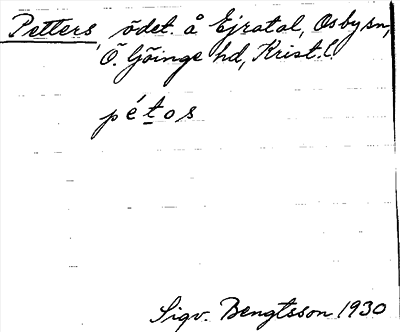 Petters, ödet. å Ejratal, Osby sn,
Ö. Göinge hd, Krist. l.
pétos
Sigv. Bengtsson 1930